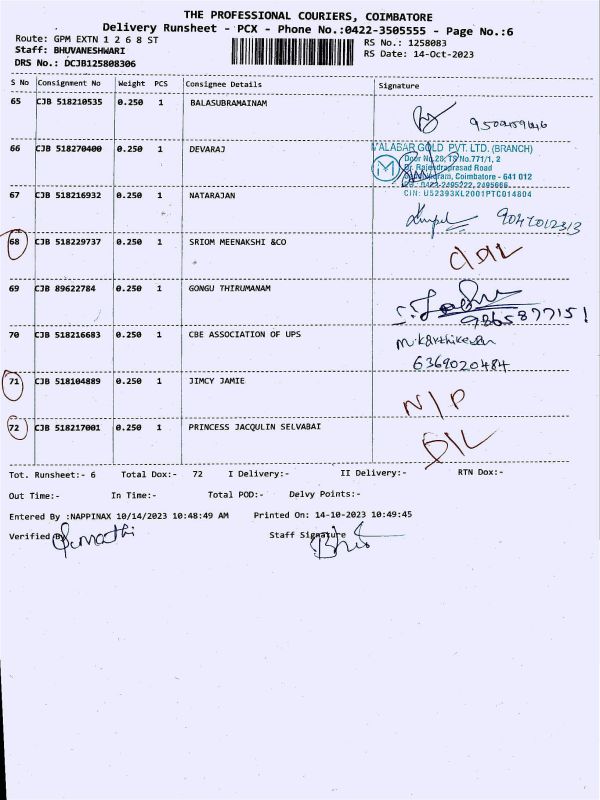 THE PROFESSIONAL COURIERS, COIMBATORE
Delivery Runsheet - PCX - Phone No.:0422-3505555 - Page No.:6
Route: GPM EXTN 1 2 6 8 ST
RS No.: 1258083
Staff: BHUVANESHWARI
RS Date: 14-Oct-2023
DRS No.: DCJB125808306
S No Consignment No Weight PCS Consignee Details Signature
65 CJB 518210535 0.250 1 BALASUBRAMAINAM
66 CJB 518270400 0.250 1 DEVARAJ
MALABAR GOLD PVT. LTD. (BRANCH)
Door No.28, TS No.771/1, 2
Dr. Rajendraprasad Road
Coimbatore - 641 012
PH: 0422-2495222, 2495666
CIN: U52393KL2001PTC014804
67 CJB 518216932 0.250 1 NATARAJAN
68 CJB 518229737 0.250 1 SRIOM MEENAKSHI &CO
69 CJB 89622784 0.250 1 GONGU THIRUMANAM
9865877151
70 CJB 518216683 0.250 1 CBE ASSOCIATION OF UPS M.Karthikeyan
6369020484
71 CJB 518104889 0.250 1 JIMCY JAMIE N/P
72 CJB 518217001 0.250 1 PRINCESS JACQULIN SELVABAI D/L
Tot. Runsheet:- 6 Total Dox:- 72 I Delivery:- II Delivery:- RTN Dox:-
Out Time:- In Time:- Total POD:- Delvy Points:-
Entered By :NAPPINAX 10/14/2023 10:48:49 AM Printed On: 14-10-2023 10:49:45
Verified By Staff Signature